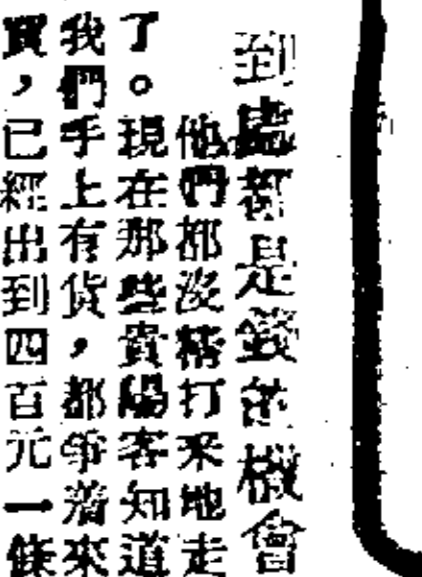 到處都是錢的機會
他們都沒精打采地走
了。現在那些貴陽客知道
我們手上有货，都爭着來
買，已經出到四百元一條